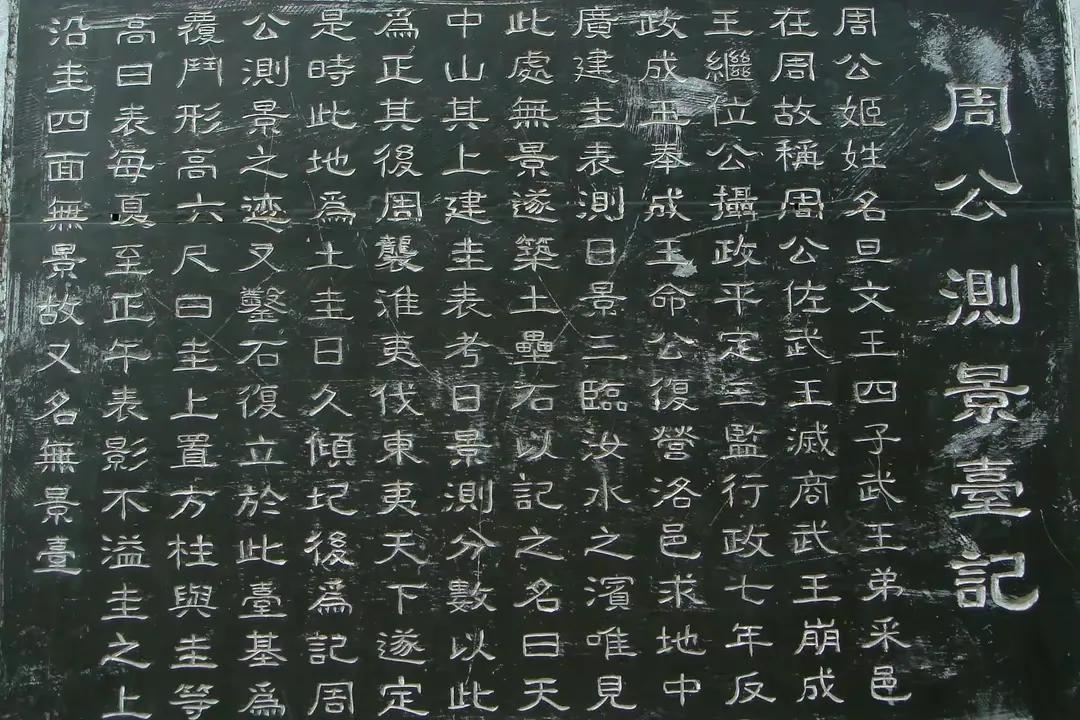 周公測景臺記
周公姬姓名旦文王四子武王弟采邑
在周故稱周公佐武王滅商武王崩成
王繼位公攝政平定三監行政七年反
政成王奉成王命公復營洛邑求地中
廣建圭表測日景三臨汝水之濱唯見
此處無景遂築土壘石以記之名曰天
中山其上建圭表考日景測分數以此
爲正其後周襲淮夷伐東夷天下遂定
是時此地爲土圭日久傾圮後爲記周
公測景之迹又鑿石復立於此臺基爲
覆鬥形高六尺曰圭上置方柱與圭等
高曰表每夏至正午表影不溢圭之上
沿圭四面無景故又名無景臺